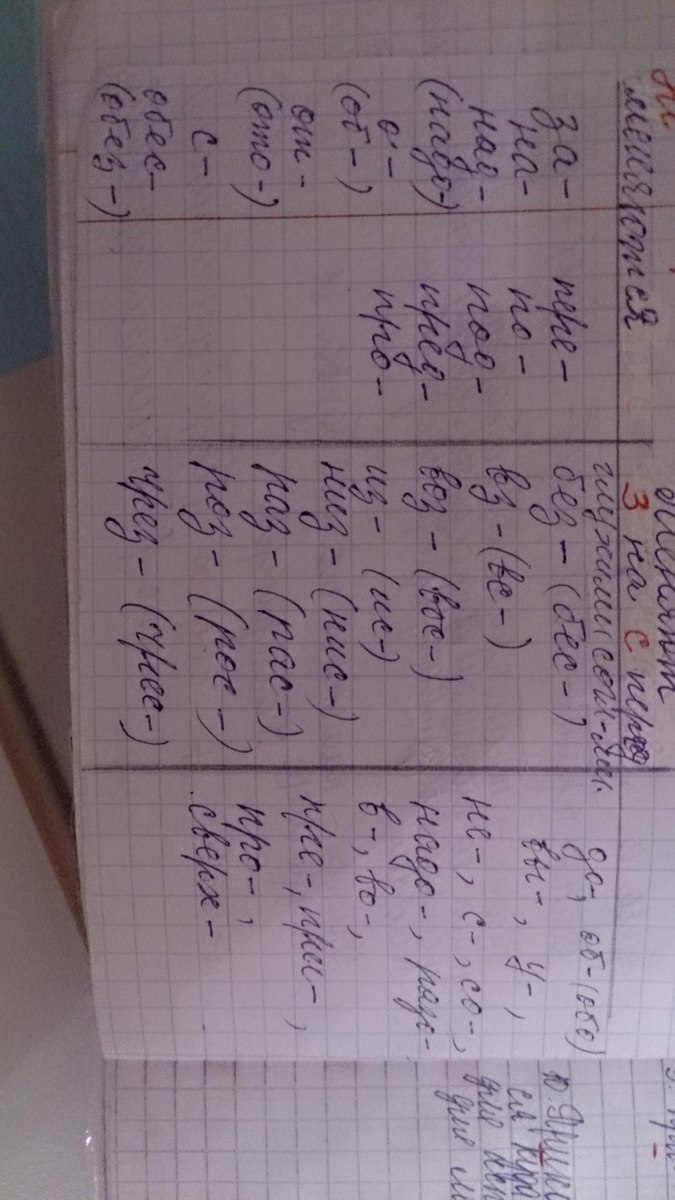 меняются
за-
на-
над-
(надо-)
о-
(об-)
от-
(ото-)
с-
обес-
(обез-)
пере-
по-
под-
пред-
про-
Меняют
З на С перед
глухими согл-ями
без-(бес-)
вз-(вс-)
воз-(вос-)
из-(ис-)
низ-(нис-)
раз-(рас-)
роз-(рос-)
чрез-(чрес-)
до-, об-(обо)
вы-, у-,
не-, с-, со-,
надо-, разо-
в-, во-,
пре-, при-,
про-,
сверх-
для
для